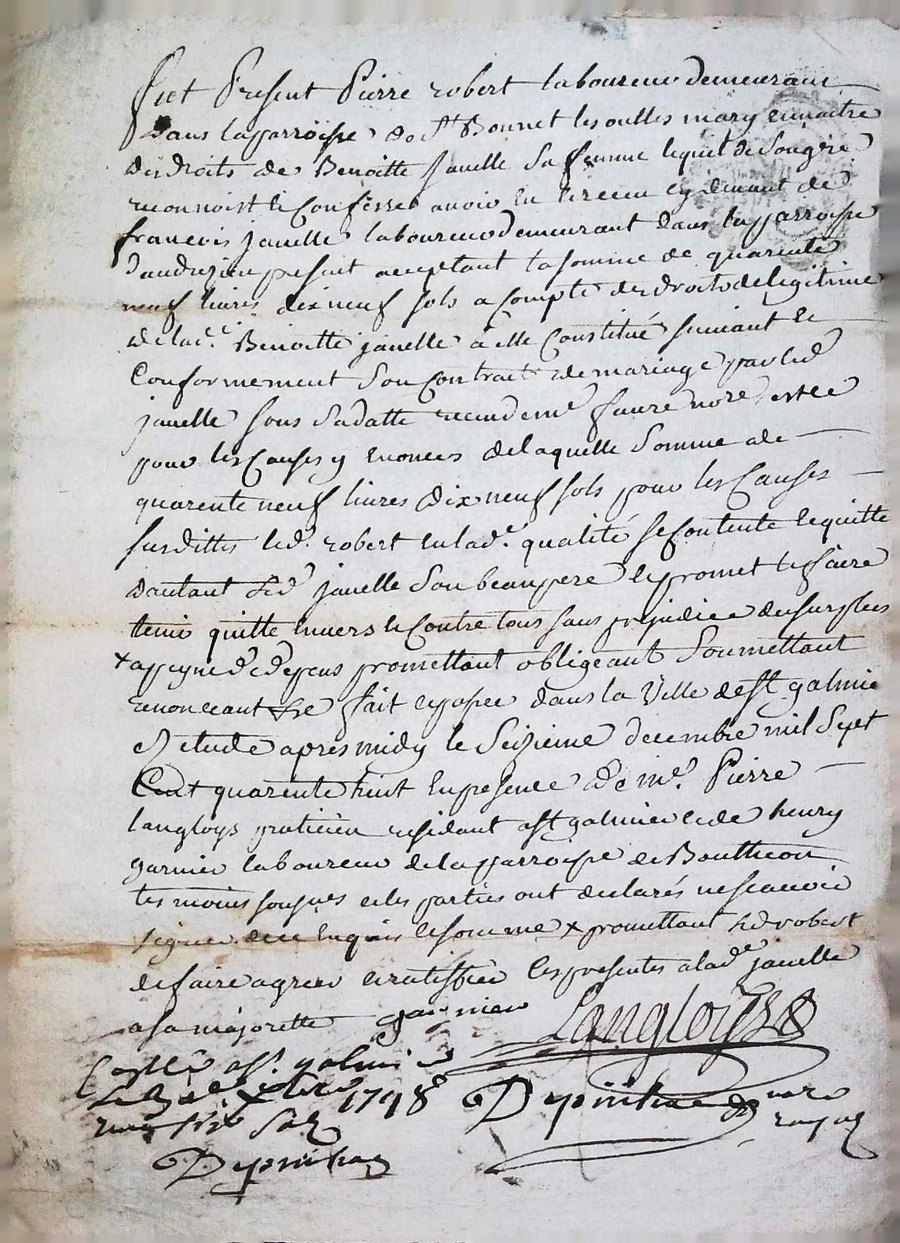 fut Present Pierre robert laboureur demeurant
dans la parroisse de st Bonnet les oulles mary et maitre
des droits de Benoitte janelle sa femme lequel de son gre
reconnoist et confesse avoir eu et receu cy devant de
francois janelle laboureur demeurant dans la parroisse
d'andrezieu present acceptant la somme de quarente
neuf livres dix neuf sols a compte des droits de legitime
de lade. Benoitte janelle à elle Constitué suivant et
Conformement son contrait de mariage par led
janelle sous sa datte receu de me faure nore et ce
pour les Causes y enoncees de laquelle somme de
quarente neuf livres dix neuf sols pour les Causes
susdittes led. robert en lade. qualité se contente et quitte
dautant led janelle son beaupere et promet le faire
tenir quitte envers et contre tous sans prejudice du surplus
x a peyne de depens promettant obligeant Soumettant
renonceant &c fait et passe dans la Ville de st galmier
etude apres midy le Seizieme decembre mil Sept
Cent quarente huit En presence de me. Pierre
langloys praticien residant a st galmier et de henry
garnier laboureur de la parroisse de Bouthéon
tesmoins et les parties ont declarés ne scavoir
signer de ce enquis et somme x promettant led robert
de faire agreer et ratiffier les presentes a lade janelle
a sa majorette garnier Langloys
Con­trollé a st. galmier
le xbre 1748
reçu six sols